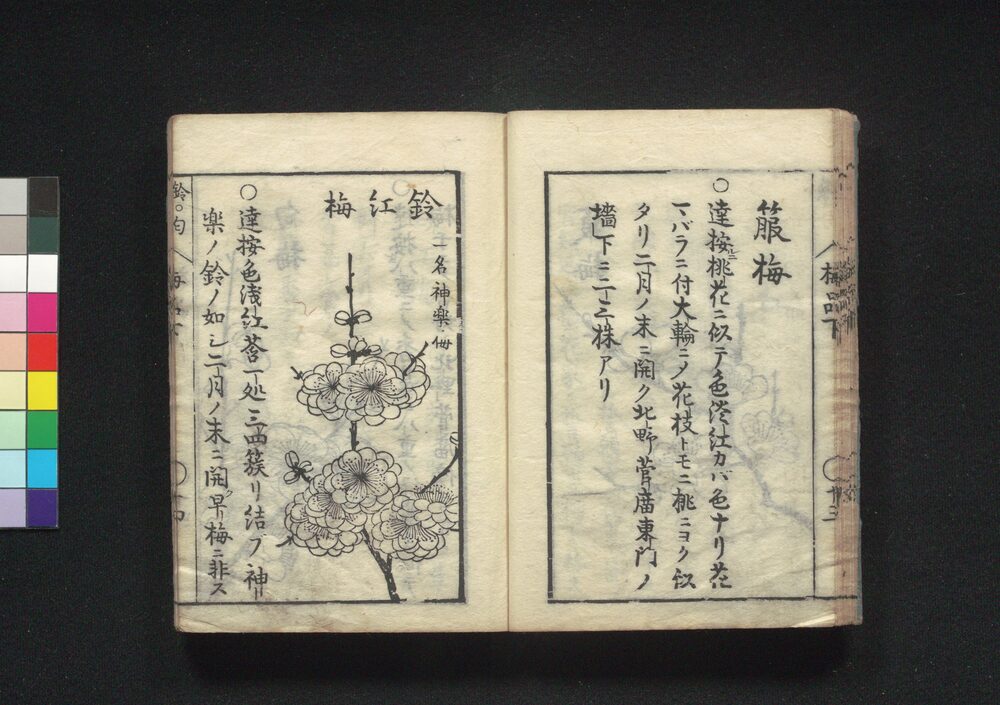 箙梅
○達按桃花ニ似テ色淡紅カバ色ナリ花
一バラニ付大輪ニ〆花枝トモニ桃ニヨク似
タリ二月ノ末ニ開ク北野菅廣東門ノ
墻下ニ二三株アリ
梅品下
十三
鈴紅梅
一名神楽梅
○達按色浅紅莟一処三四簇リ結ブ神
楽ノ鈴ノ如シ二月ノ末ニ開ク早梅ニ非ス
鈴○匂